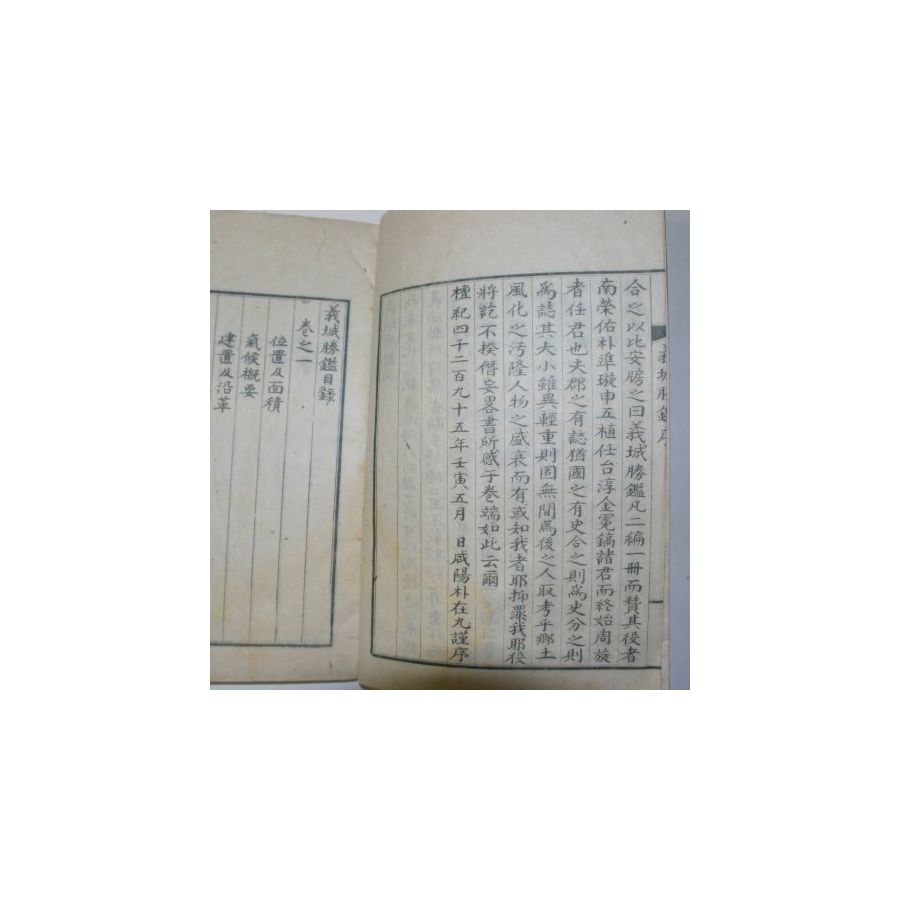 合之以比安牓之曰義城勝鑑凡二編一冊而賛其役者
南榮佑朴準璇申五植任台淳金冕鎬諸君而終始周旋
者任君也夫郡之有誌猶國之有史合之則爲史分之則
爲誌其大小雖異輕重則固無間爲後之人取考乎鄕土
風化之汚隆人物之盛衰而有或知我者耶抑罪我耶役
將訖不揆僭妄畧書所感于卷端如此云爾
檀紀四千二百九十五年壬寅五月 日咸陽朴在九謹序
義城勝鑑序
義城勝鑑目錄
卷之一
位置及面積
氣候槪要
建置及沿革